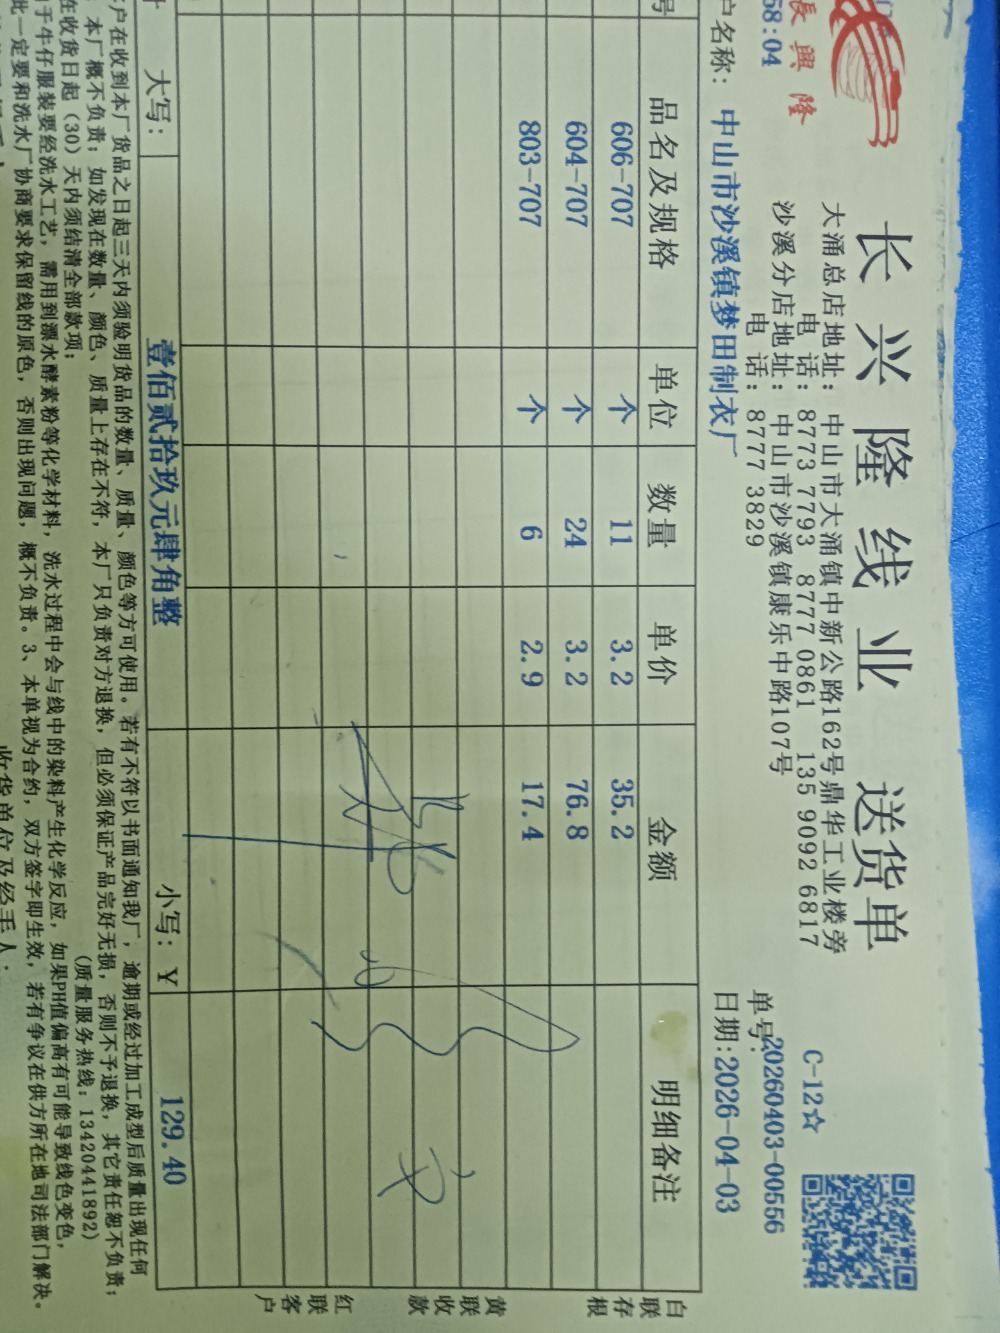 長興隆
长兴隆线业 送货单
C-12☆
大涌总店地址：中山市大涌镇中新公路162号鼎华工业楼旁
电 话：8773 7793 8777 0861 135 9092 6817
沙溪分店地址：中山市沙溪镇康乐中路107号
电 话：8777 3829
58:04
单号：20260403-00556
户名称：中山市沙溪镇梦田制衣厂
日期：2026-04-03
号 品名及规格 单位 数量 单价 金额 明细备注
606-707 个 11 3.2 35.2
604-707 个 24 3.2 76.8
803-707 个 6 2.9 17.4
计 大写： 壹佰贰拾玖元肆角整 小写：￥ 129.40
白联存根
黄联收款
红联客户
客户在收到本厂货品之日起三天内须验明货品的数量、质量、颜色等方可使用。若有不符以书面通知我厂，逾期或经过加工成型后质量出现任何
本厂概不负责；如发现在数量、颜色、质量上存在不符，本厂只负责对方退换，但必须保证产品完好无损，否则不予退换，其它责任恕不负责；
在收货日起（30）天内须结清全部款项； （质量服务热线：13420441892）
于牛仔服装要经洗水工艺，需用到漂水酵素粉等化学材料，洗水过程中会与线中的染料产生化学反应，如果PH值偏高有可能导致线色变色，
此一定要和洗水厂协商要求保留线的原色，否则出现问题，概不负责。3、本单视为合约，双方签字即生效，若有争议在供方所在地司法部门解决。
收货单位及经手人：